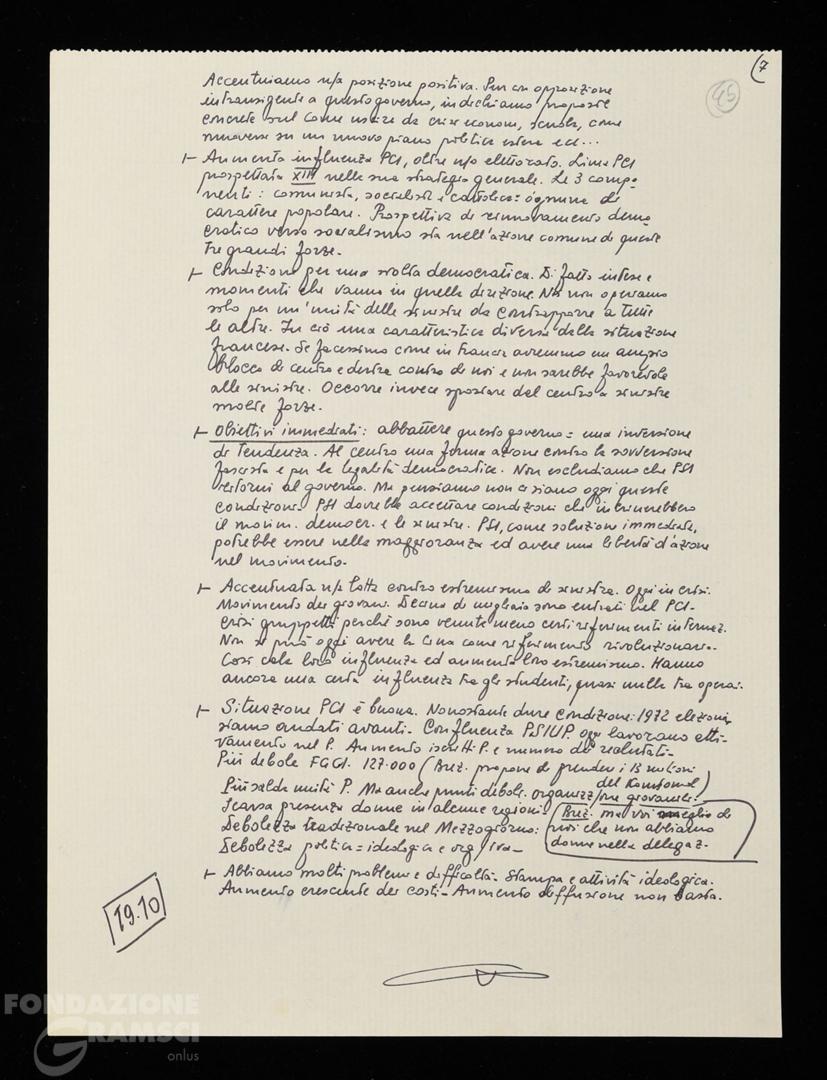 7
45
Accentuiamo n/a posizione positiva. Pur con opposizione
intransigente a questo governo, indichiamo proposte
concrete sul come uscire da crisi econom., scuola, come
muoversi su un nuovo piano politica estera ecc...
Aumenta influenza PCI, oltre n/o elettorato. Linea PCI
prospettata XIII nella sua strategia generale. Le 3 compo-
nenti: comunista, socialista e cattolica = ognuna di
carattere popolare. Prospettiva di rinnovamento demo
cratico verso socialismo sta nell'azione comune di queste
tre grandi forze.
Condizione per una svolta democratica. Di fatto intese e
momenti che vanno in quella direzione. Noi non operiamo
solo per un'unità delle sinistre da contrapporre a tutte
le altre. In ciò una caratteristica diversa dalla situazione
francese. Se facessimo come in Francia avremmo un ampio
blocco di centro e destra contro di noi e non sarebbe favorevole
alle sinistre. Occorre invece spostare dal centro a sinistra
molte forze.
Obiettivi immediati: abbattere questo governo = una inversione
di tendenza. Al centro una ferma azione contro la sovversione
fascista e per la legalità democratica. Non escludiamo che PSI
ritorni al governo. Ma pensiamo non ci siano oggi queste
condizioni. PSI dovrebbe accettare condizioni che incrinerebbero
il movim. democr. e le sinistre. PSI, come soluzione immediata,
potrebbe essere nella maggioranza ed avere una libertà d'azione
nel movimento.
Accentuata n/a lotta contro estremismo di sinistra. Oggi in crisi.
Movimento dei giovani. Decine di migliaia sono entrati nel PCI.
Crisi gruppetti perché sono venute meno certi riferimenti internaz.
Non si può oggi avere la Cina come riferimento rivoluzionario.
Così cala loro influenza ed aumenta loro estremismo. Hanno
ancora una certa influenza tra gli studenti, quasi nulla tra operai.
Situazione PCI è buona. Nonostante dure condizioni: 1972 elezioni
siamo andati avanti. Confluenza PSIUP. oggi lavorano atti-
vamente nel P. Aumento iscritti P. e numero dei reclutati.
Più debole FGCI. 127.000 (Brez. propone di prendere i 13 milioni
del Komsomol)
Più salda unità P. Ma anche punti debole. organizz/one giovanile.
Scarsa presenza donne in alcune regioni.
Brez. ma voi meglio di
Debolezza tradizionale nel Mezzogiorno: noi che non abbiamo
Debolezza politica = ideologica e org/iva -
donne nella delegaz.
Abbiamo molti problemi e difficoltà. Stampa e attività ideologica.
Aumento crescente dei costi - Aumento diffusione non basta.
19.10
FONDAZIONE
GRAMSCI
onlus